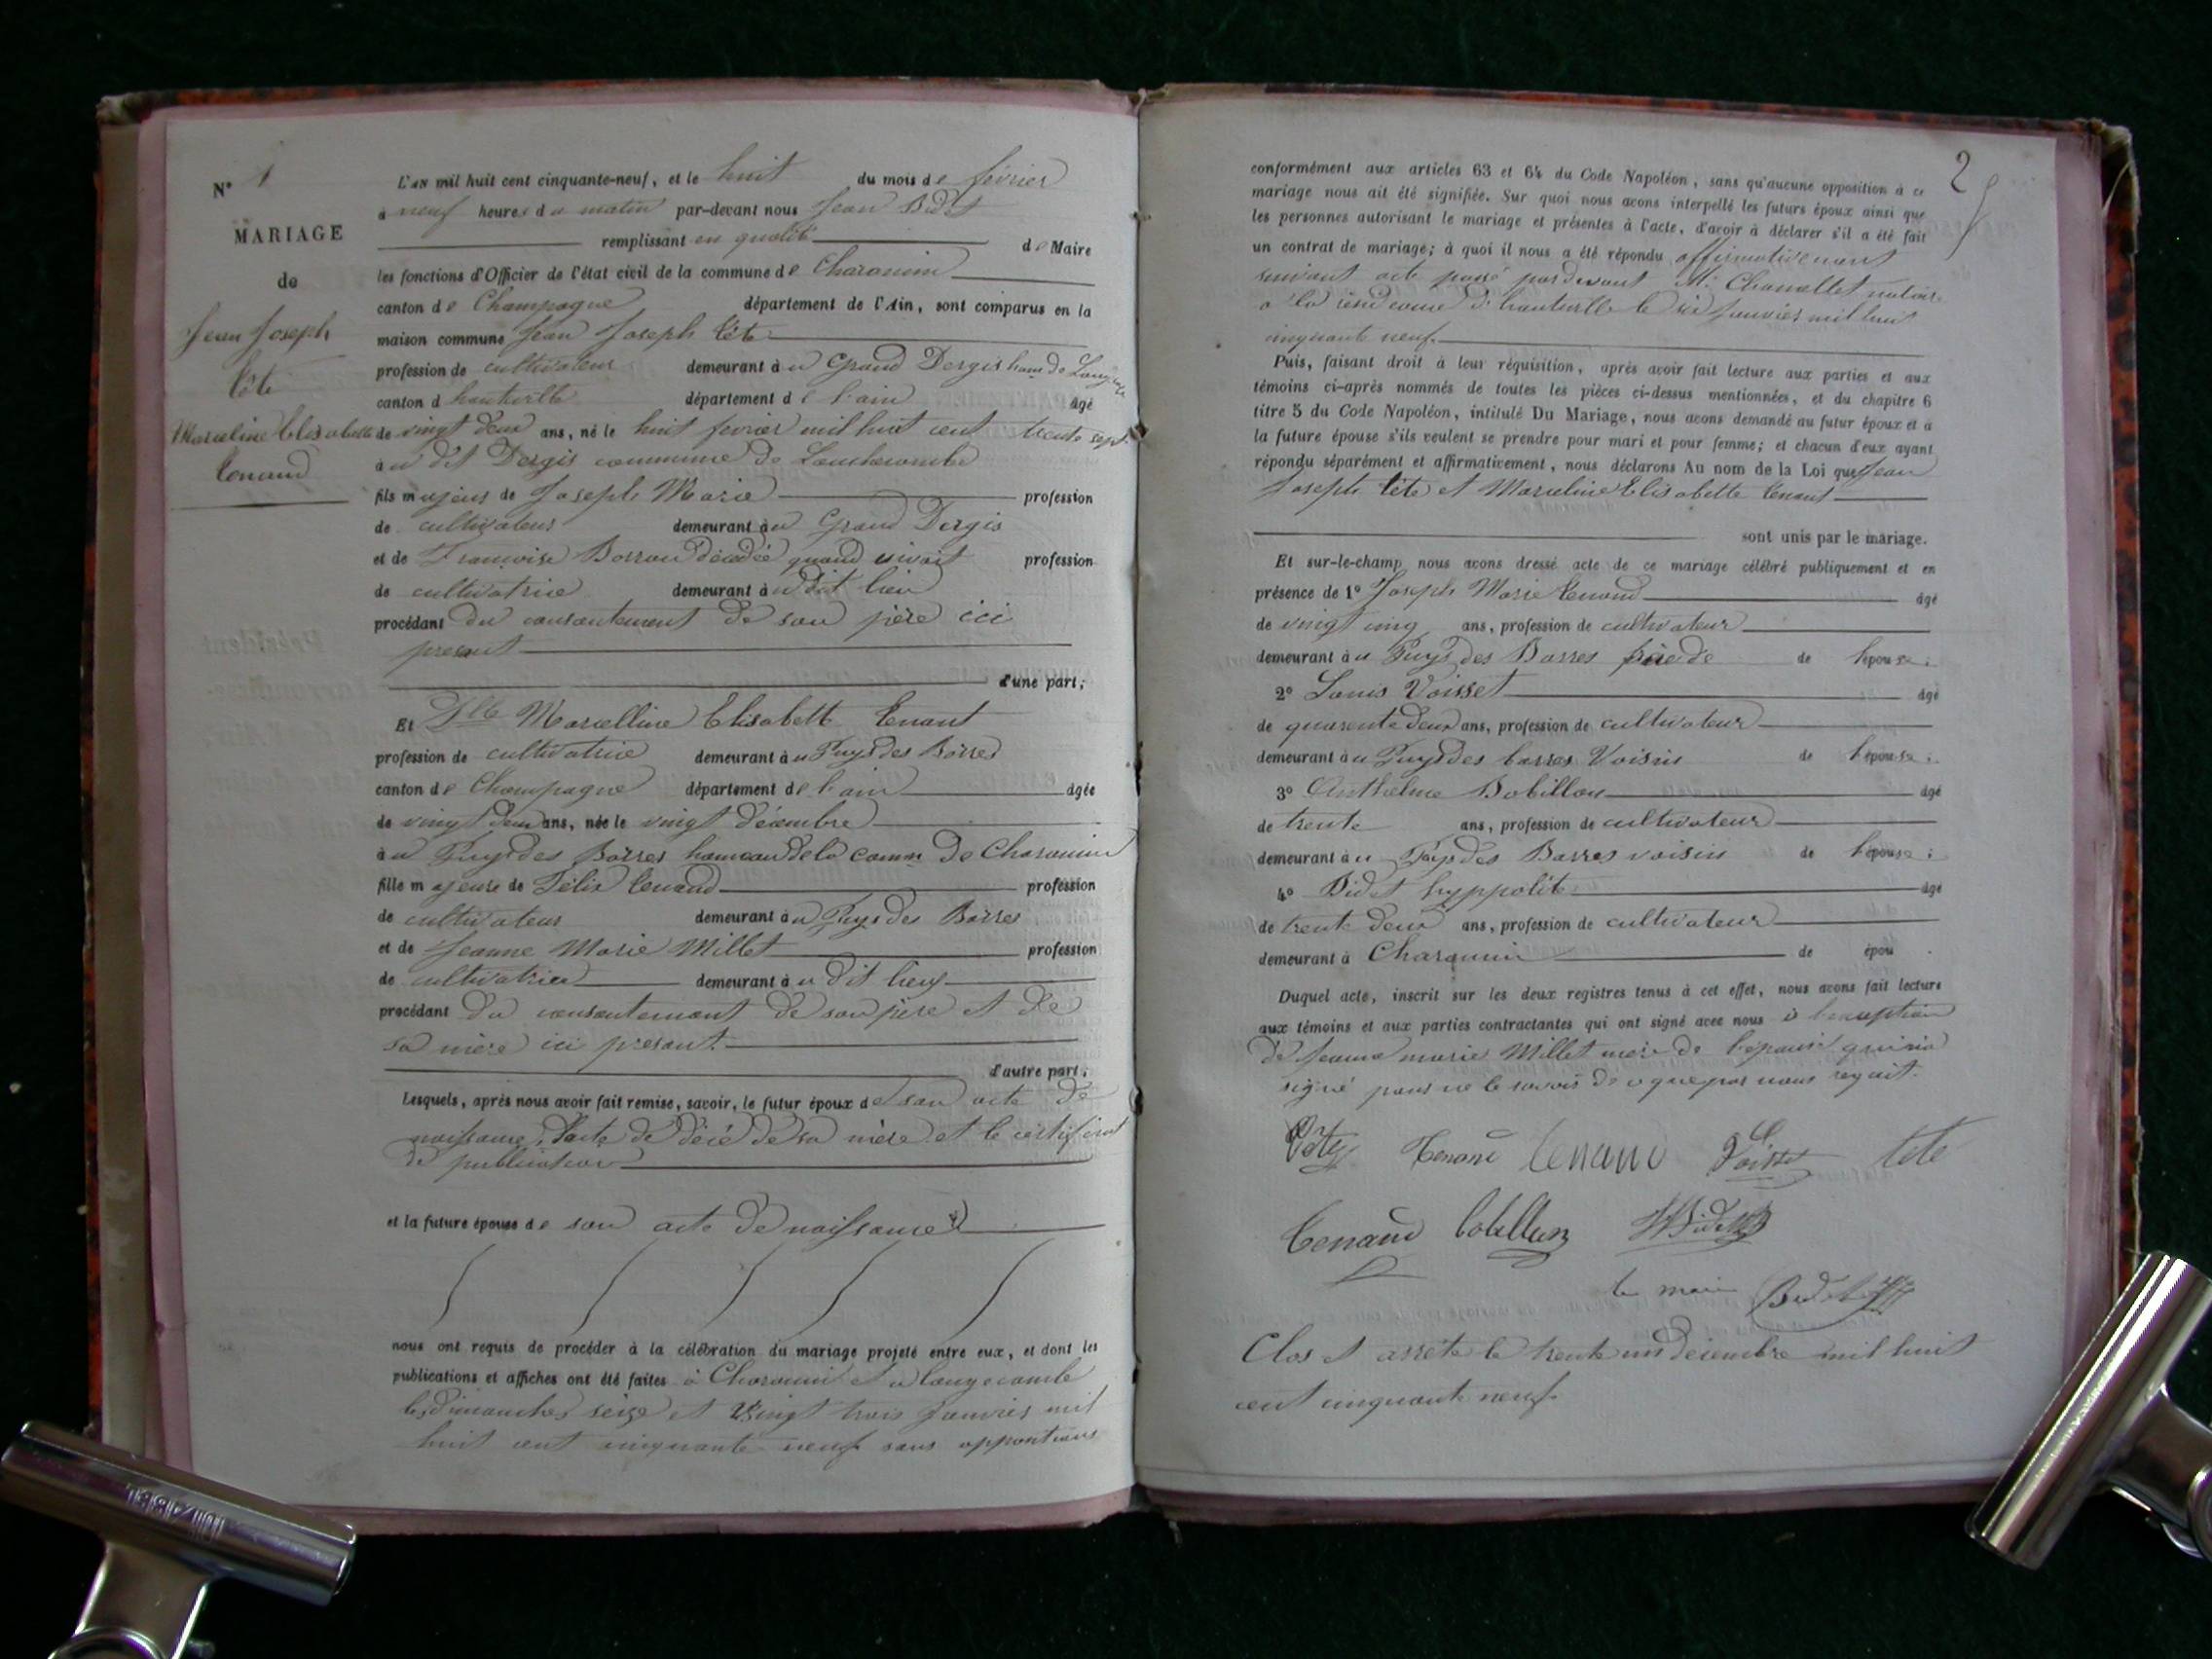 N° 1
MARIAGE
de
Jean Joseph
tête
Marceline Elisabette
tenand
L'an mil huit cent cinquante-neuf, et le huit du mois de février
à neuf heures du matin par-devant nous Jean Bidet
remplissant en qualité de Maire
les fonctions d'Officier de l'état civil de la commune de Charancin
canton de Champagne département de l'Ain, sont comparus en la
maison commune Jean Joseph tête
profession de cultivateur demeurant à u Grand Dergis ham de
canton d hauteville département de l'ain âgé
de vingt deux ans, né le huit fevrier mil huit cent trente sept
à u dit Dergis commune de
fils majeur de Joseph Marie profession
de cultivateur demeurant à u Grand Dergis
et de Françoise Borron décédée quand vivait profession
de cultivatrice demeurant à u dit lieu
procédant du consentement de son père ici
present
d'une part;
Et Dlle Marcelline Elisabette tenant
profession de cultivatrice demeurant à u Puys des Barres
canton de Champagne département de l'ain âgée
de vingt deux ans, née le vingt décembre
à u Puys des Barres hameau de la comm de Charancin
fille majeure de Félix tenand profession
de cultivateur demeurant à u Puys des Barres
et de Jeanne Marie Millet profession
de cultivatrice demeurant à u dit lieu
procédant du consentement de son père et de
sa mère ici présent.
d'autre part;
Lesquels, après nous avoir fait remise, savoir, le futur époux de son acte de
naissance, l'acte de décé de sa mère et le certificat
de publication
et la future épouse de son acte de naissance
nous ont requis de procéder à la célébration du mariage projeté entre eux, et dont les
publications et affiches ont été faites à Charancin et a longecombe
les dimanches seize et vingt trois janvier mil
huit cent cinquante neuf sans oppositions
2
conformément aux articles 63 et 64 du Code Napoléon, sans qu'aucune opposition à ce
mariage nous ait été signifiée. Sur quoi nous avons interpellé les futurs époux ainsi que
les personnes autorisant le mariage et présentes à l'acte, d'avoir à déclarer s'il a été fait
un contrat de mariage; à quoi il nous a été répondu affirmativement
suivant acte passé pardevant Mr notaire
a la résidence d'hauteville le six janvier mil huit
cinquante neuf.
Puis, faisant droit à leur réquisition, après avoir fait lecture aux parties et aux
témoins ci-après nommés de toutes les pièces ci-dessus mentionnées, et du chapitre 6
titre 5 du Code Napoléon, intitulé Du Mariage, nous avons demandé au futur époux et à
la future épouse s'ils veulent se prendre pour mari et pour femme; et chacun d'eux ayant
répondu séparément et affirmativement, nous déclarons Au nom de la Loi que Jean
Joseph tête et Marceline Elisabette tenant
sont unis par le mariage.
Et sur-le-champ nous avons dressé acte de ce mariage célébré publiquement et en
présence de 1° Joseph Marie tenand âgé
de vingt cinq ans, profession de cultivateur
demeurant à u Puys des Barres de l'épouse;
2° Louis Voisset âgé
de quarente deux ans, profession de cultivateur
demeurant à u Puys des barres Voisin de l'épouse;
3° Anthelme Bobillon âgé
de trente ans, profession de cultivateur
demeurant à u Puys des Barres voisin de l'épouse;
4° Bidet hyppolite âgé
de trente deux ans, profession de cultivateur
demeurant à Charancin de épou .
Duquel acte, inscrit sur les deux registres tenus à cet effet, nous avons fait lecture
aux témoins et aux parties contractantes qui ont signé avec nous à l'exception
de Jeanne marie Millet mère de l'épouse qui n'a
signé pour ne le savoir de ce que par nous requit.
tenand tenand Voisset tête
tenand bobillon HBidet
le maire Bidet
Clos et arrêté le trente un décembre mil huit
cent cinquante neuf.